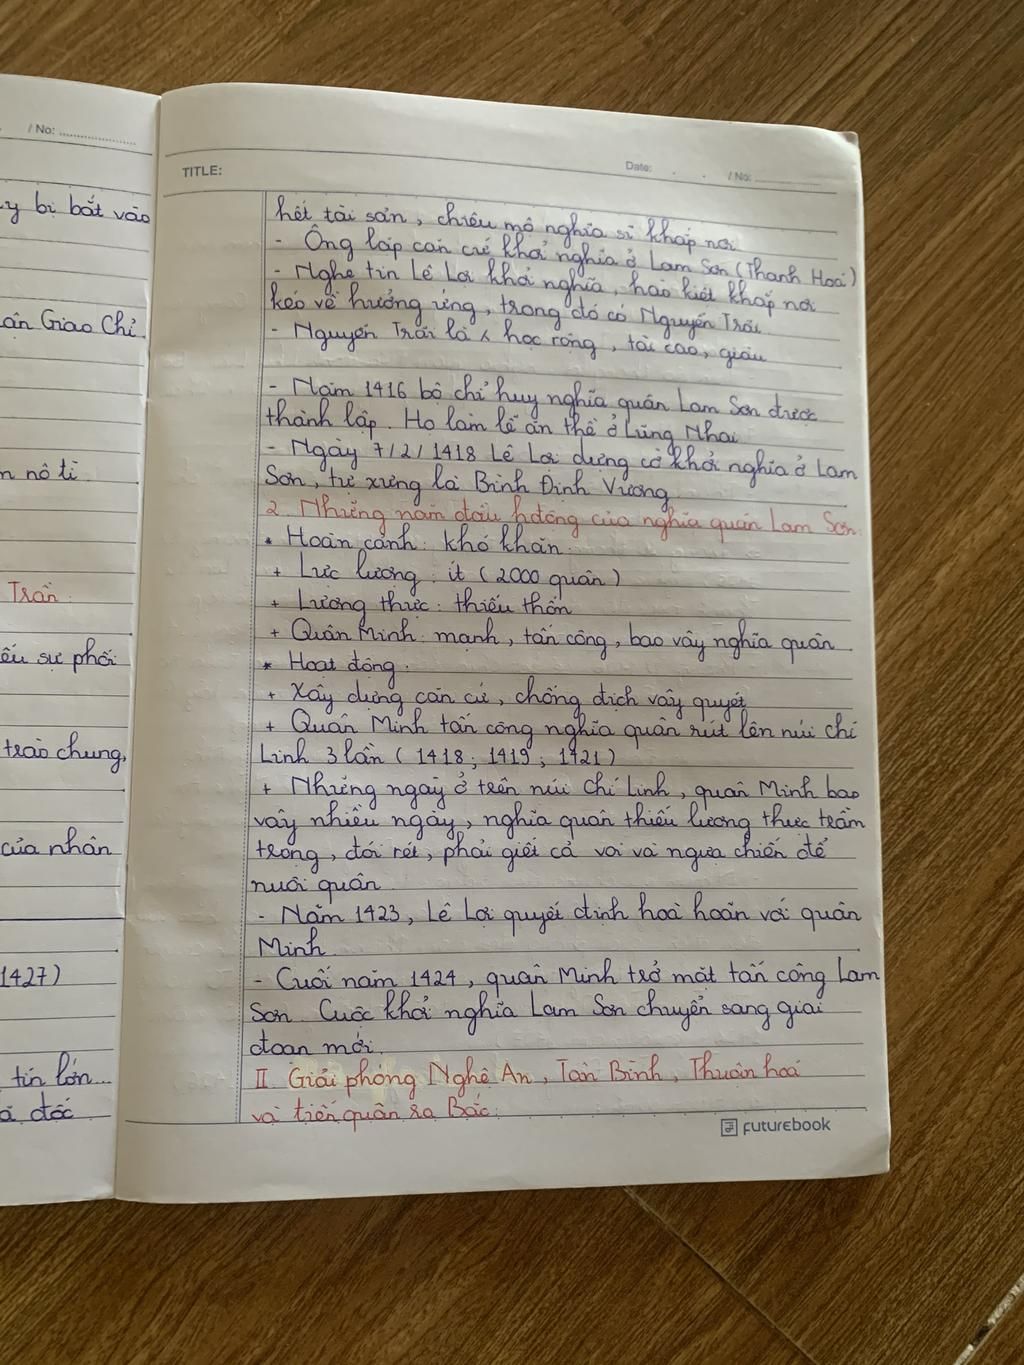 / No:
y bị bắt vào
ân Giao Chỉ
n nô tì
Trần.
ếu sự phối
trào chung,
của nhân
1427)
tín lớn...
ả dốc
TITLE:
Date: . . / No:
hết tài sản, chiêu mộ nghĩa sĩ khắp nơi
- Ông lập căn cứ khởi nghĩa ở Lam Sơn (Thanh Hoá)
- Nghe tin Lê Lợi khởi nghĩa, hào kiệt khắp nơi
kéo về hưởng ứng, trong đó có Nguyễn Trãi
- Nguyễn Trãi là học rộng, tài cao, giàu
- Năm 1416 bộ chỉ huy nghĩa quân Lam Sơn được
thành lập. Họ làm lễ ăn thề ở Lũng Nhai
- Ngày 7/2/1418 Lê Lợi dựng cờ khởi nghĩa ở Lam
Sơn, tự xưng là Bình Định Vương
2. Những năm đầu hđộng của nghĩa quân Lam Sơn.
* Hoàn cảnh: khó khăn.
+ Lực lượng: ít (2000 quân)
+ Lương thực: thiếu thốn
+ Quân Minh: mạnh, tấn công, bao vây nghĩa quân.
* Hoạt động:
+ Xây dựng căn cứ, chống địch vây quyét
+ Quân Minh tấn công nghĩa quân rút lên núi chí
Linh 3 lần (1418; 1419; 1421)
+ Những ngày ở trên núi Chí Linh, quân Minh bao
vây nhiều ngày, nghĩa quân thiếu lương thực trầm
trọng, đói rét, phải giết cả voi và ngựa chiến để
nuôi quân
- Năm 1423, Lê Lợi quyết định hoà hoãn với quân
Minh.
- Cuối năm 1424, quân Minh trở mặt tấn công Lam
Sơn. Cuộc khởi nghĩa Lam Sơn chuyển sang giai
đoạn mới.
II. Giải phóng Nghệ An, Tân Bình, Thuận hoá
và tiến quân ra Bắc.
FUTUREBOOK